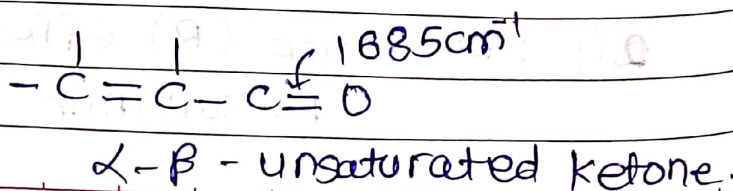 1685cm⁻¹
- C = C - C = O
α-β - unsaturated ketone.